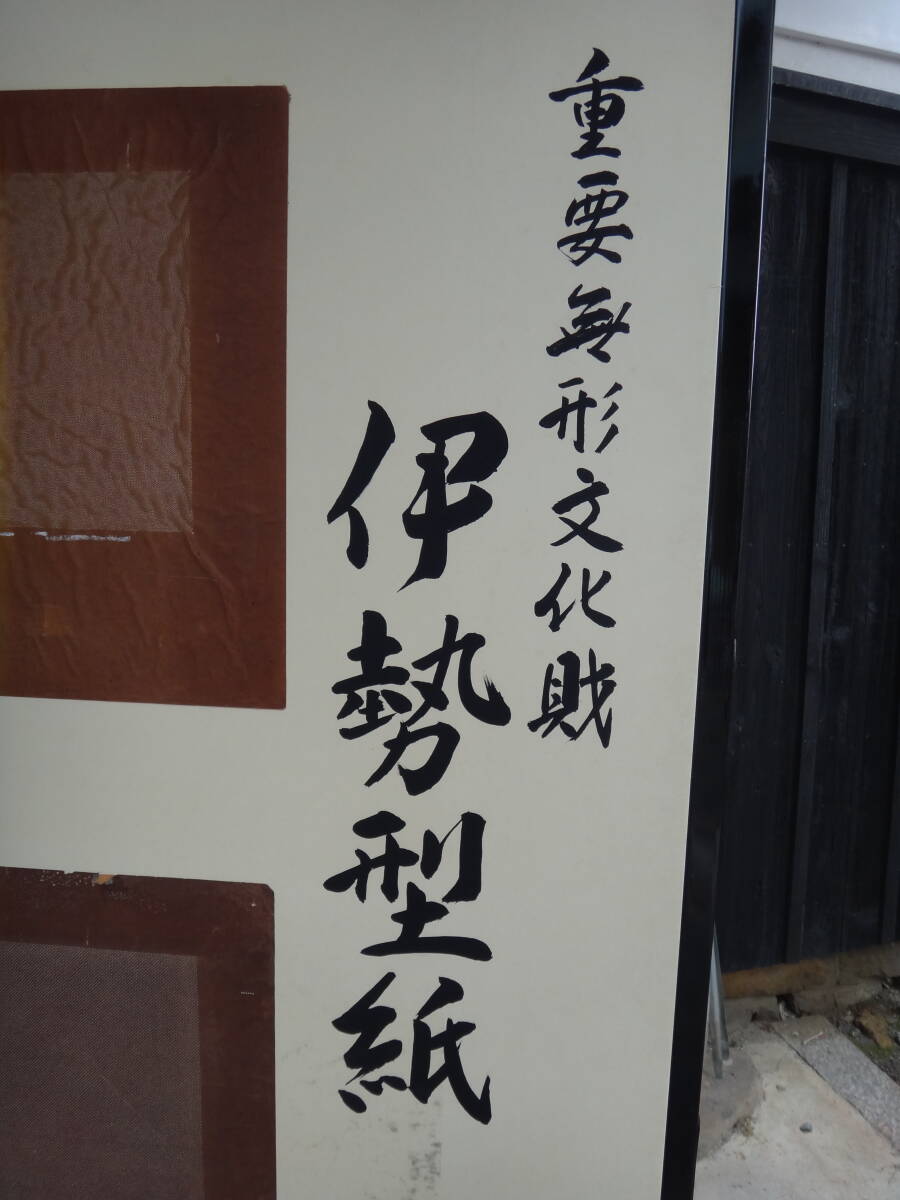 重要無形文化財
伊勢型紙